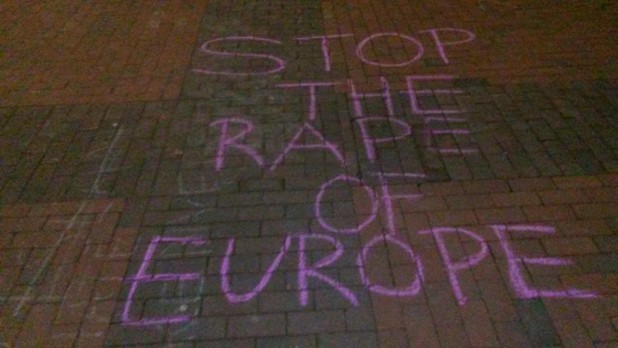 STOP
THE
RAPE
OF
EUROPE